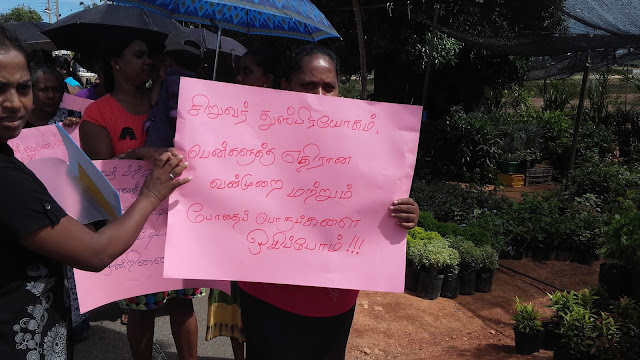 சிறுவர் துஸ்பிரயோகம்,
பெண்களுக்கு எதிரான
வன்முறை மற்றும்
போதைப் பொருட்களை
ஒழிப்போம் !!!